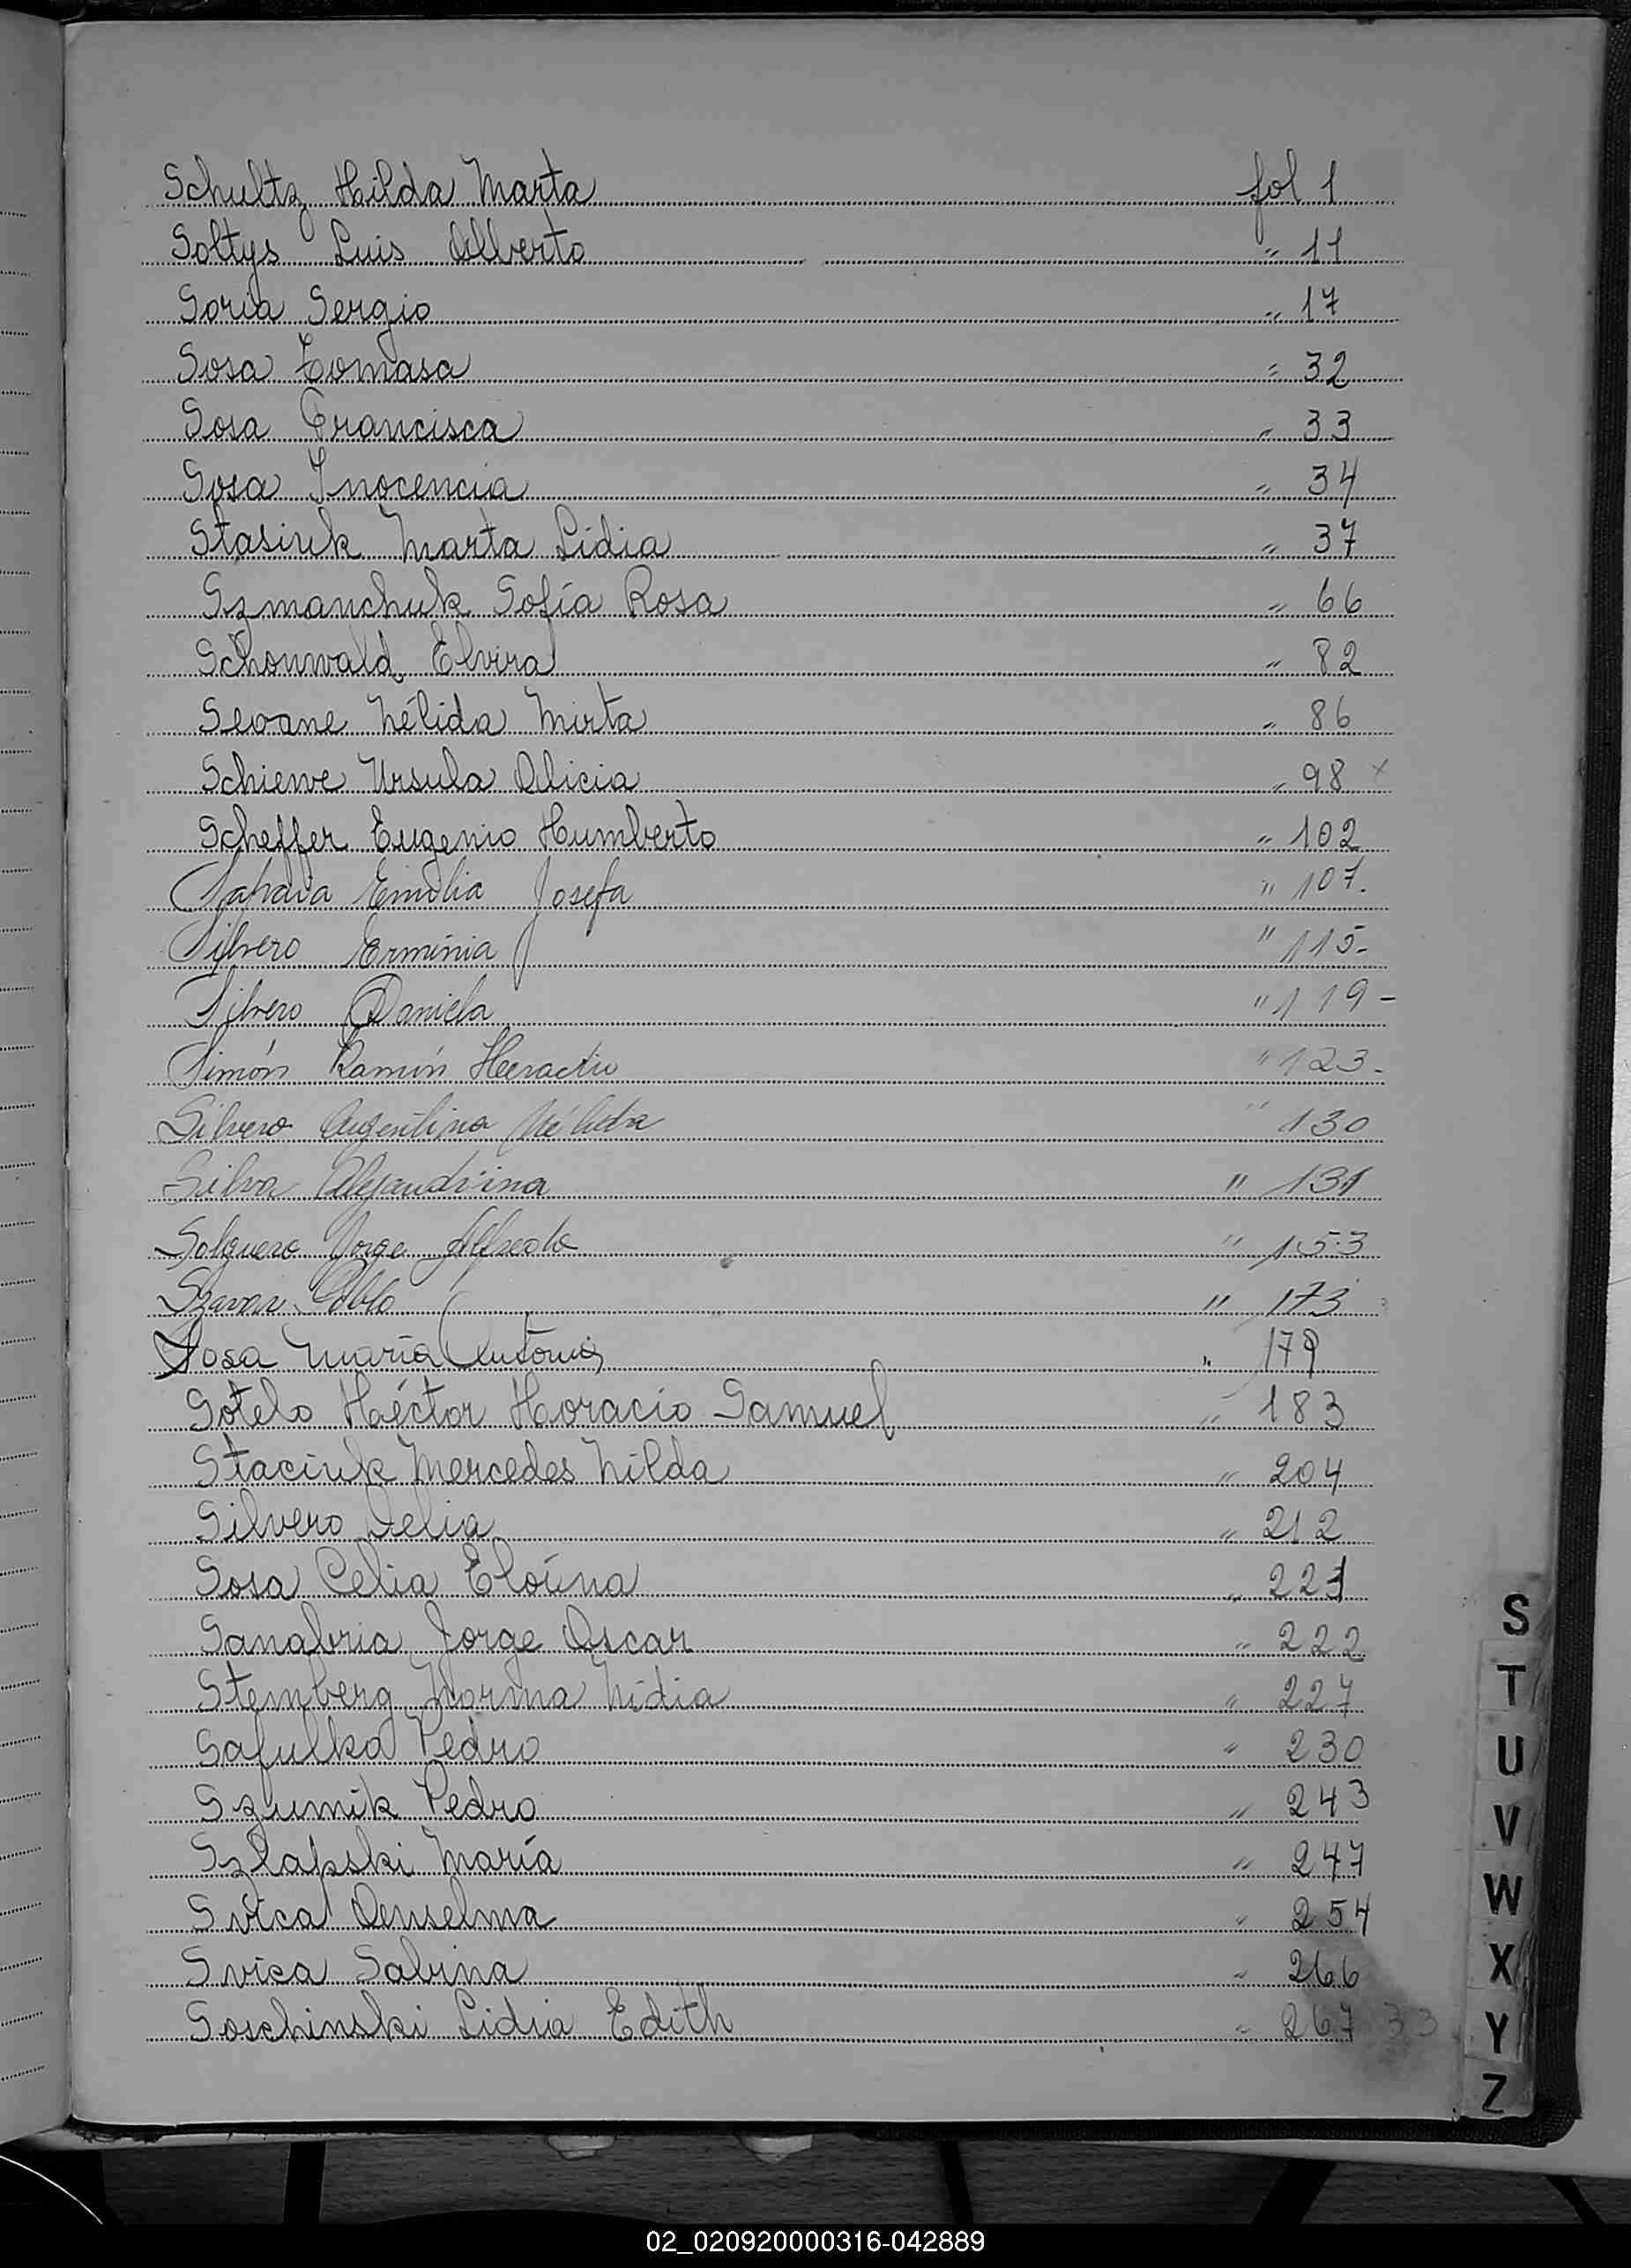 Schultz Hilda Marta fol 1
Soltys Luis Alberto " 11
Soria Sergio " 17
Sosa Tomasa " 32
Sosa Francisca " 33
Sosa Inocencia " 34
Stasiuk Marta Lidia " 37
Szmanchuk Sofía Rosa " 66
Schonwald Elvira " 82
Seoane Nélida Mirta " 86
Schiewe Ursula Alicia " 98 x
Scheffer Eugenio Humberto " 102
Emilia Josefa " 107.
Silvero Erminia " 115-
Silvero Daniela " 119-
Simón Ramón " 123-
Silvero Argentina Nélida " 130
Silva Alejandrina " 131
Solguero Jorge Alfredo " 153
Pablo " 173
Sosa María Antonia " 179
Sotelo Héctor Horacio Samuel " 183
Staciuk Mercedes Nilda " 204
Silvero Delia " 212
Sosa Celia " 221
Sanabria Jorge Oscar " 222
Stemberg Norma Nidia " 227
Safulka Pedro " 230
Szumik Pedro " 243
Szlapski María " 247
Svica " 254
Svica Sabina " 266
Soschinski Lidia Edith " 267 33
S
T
U
V
W
X
Y
Z
02_020920000316-042889